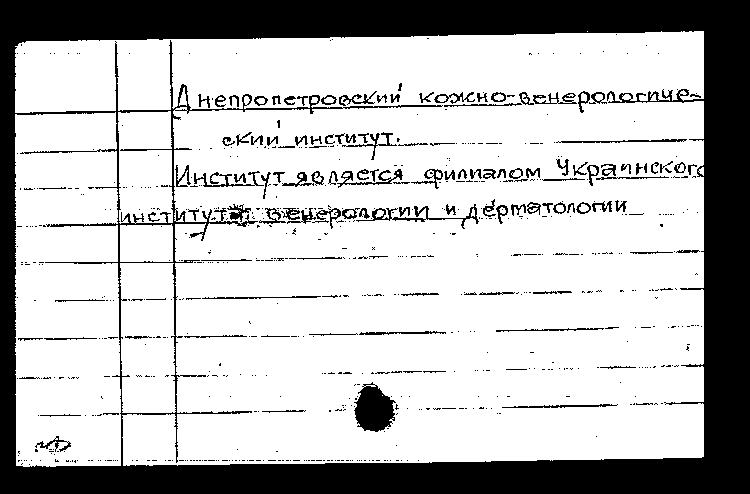 Днепропетровский кожно-венерологиче-
ский институт.
Институт является филиалом Украинского
института венерологии и дерматологии